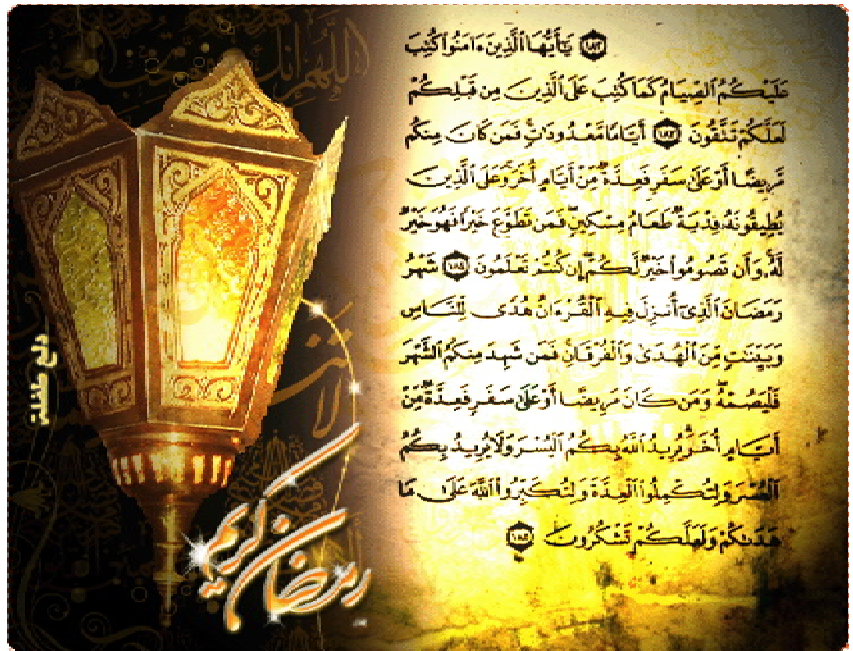 ﴿١٨٢﴾ يَـٰٓأَيُّهَا ٱلَّذِينَ ءَامَنُوا۟ كُتِبَ
عَلَيْكُمُ ٱلصِّيَامُ كَمَا كُتِبَ عَلَى ٱلَّذِينَ مِن قَبْلِكُمْ
لَعَلَّكُمْ تَتَّقُونَ ﴿١٨٣﴾ أَيَّامًا مَّعْدُودَٰتٍ فَمَن كَانَ مِنكُم
مَّرِيضًا أَوْ عَلَىٰ سَفَرٍ فَعِدَّةٌ مِّنْ أَيَّامٍ أُخَرَ وَعَلَى ٱلَّذِينَ
يُطِيقُونَهُۥ فِدْيَةٌ طَعَامُ مِسْكِينٍ فَمَن تَطَوَّعَ خَيْرًا فَهُوَ خَيْرٌ
لَّهُۥ وَأَن تَصُومُوا۟ خَيْرٌ لَّكُمْ إِن كُنتُمْ تَعْلَمُونَ ﴿١٨٤﴾ شَهْرُ
رَمَضَانَ ٱلَّذِىٓ أُنزِلَ فِيهِ ٱلْقُرْءَانُ هُدًى لِّلنَّاسِ
وَبَيِّنَـٰتٍ مِّنَ ٱلْهُدَىٰ وَٱلْفُرْقَانِ فَمَن شَهِدَ مِنكُمُ ٱلشَّهْرَ
فَلْيَصُمْهُ وَمَن كَانَ مَرِيضًا أَوْ عَلَىٰ سَفَرٍ فَعِدَّةٌ مِّنْ
أَيَّامٍ أُخَرَ يُرِيدُ ٱللَّهُ بِكُمُ ٱلْيُسْرَ وَلَا يُرِيدُ بِكُمُ
ٱلْعُسْرَ وَلِتُكْمِلُوا۟ ٱلْعِدَّةَ وَلِتُكَبِّرُوا۟ ٱللَّهَ عَلَىٰ مَا
هَدَىٰكُمْ وَلَعَلَّكُمْ تَشْكُرُونَ ﴿١٨٥﴾
رمضان كريم